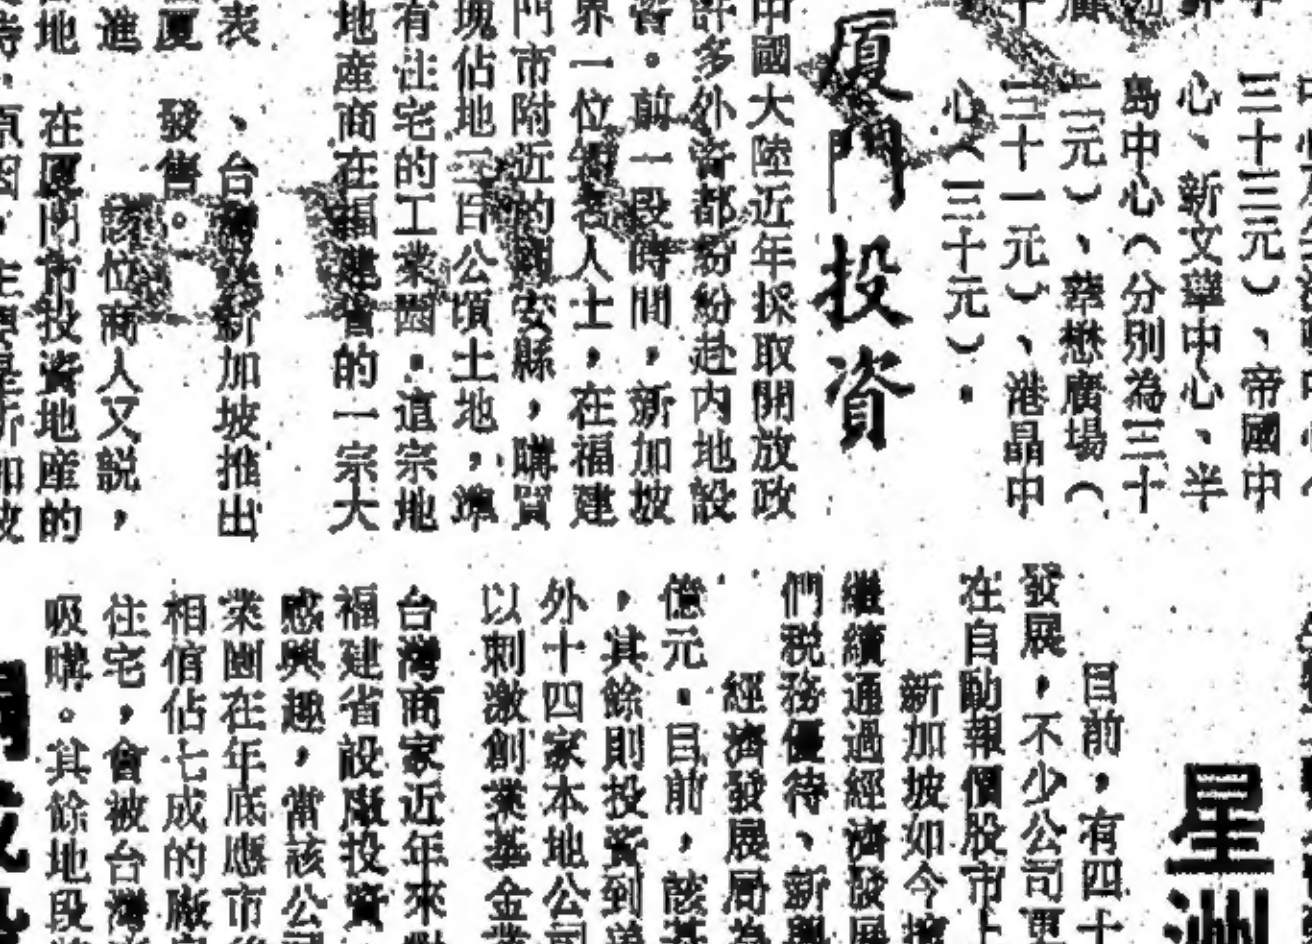 三十三元)、帝國中
心、新文華中心、半
島中心(分別為三十
二元)、華懋廣場(
三十一元)、港晶中
心(三十元)。
厦門投資
中國大陸近年採取開放政
許多外資都紛紛赴内地設
。前一段時間,新加坡
界一位知名人士,在福建
門市附近的同安縣,購買
塊佔地三百公頃土地,準
有住宅的工業園。這宗地
地産商在福建省的一宗大
表
、台灣及新加坡推出
厦
發售。
進
該位商人又説,
地
在厦門市投資地産的
原因,主要是新加坡
星洲
目前,有四十
發展,不少公司更
在自動報價股市上
新加坡如今擁
繼續通過經濟發展
們税務優待、新興
經濟發展局為
億元。目前,該基
,其餘則投資到
外十四家本地公司
以刺激創業基金業
台灣商家近年來對
福建省設廠投資
感興趣,當該公司
業園在年底應市後
相信佔七成的廠房
住宅,會被台灣
吸購。其餘地段